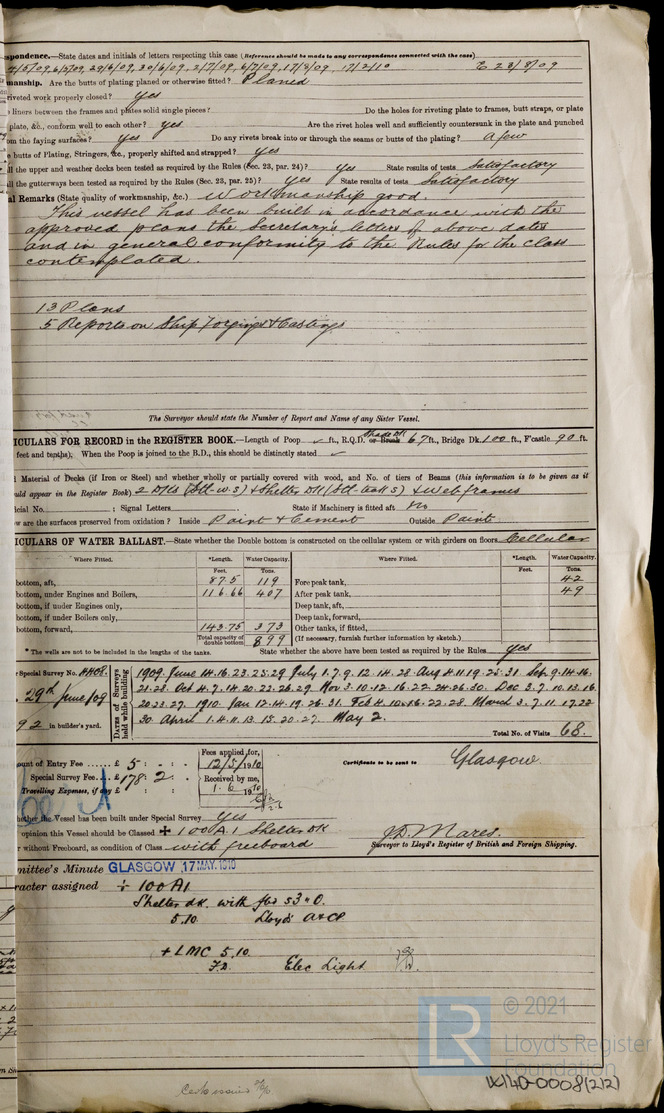 spondence.—State dates and initials of letters respecting this case (Reference should be made to any correspondence connected with the case)
4/5/09, 6/5/09, 29/6/09, 30/6/09, 2/7/09, 6/7/09, 17/8/09, 17/2/10 E 23/8/09
manship. Are the butts of plating planed or otherwise fitted? Planed
riveted work properly closed? Yes
e liners between the frames and plates solid single pieces? Do the holes for riveting plate to frames, butt straps, or plate
plate, &c., conform well to each other? Yes Are the rivet holes well and sufficiently countersunk in the plate and punched
om the faying surfaces? Yes Do any rivets break into or through the seams or butts of the plating? A few
e butts of Plating, Stringers, &c., properly shifted and strapped? Yes
ll the upper and weather decks been tested as required by the Rules (Sec. 23, par. 24)? Yes State results of tests Satisfactory
ll the gutterways been tested as required by the Rules (Sec. 23, par. 25)? Yes State results of tests Satisfactory
al Remarks (State quality of workmanship, &c.) Workmanship good.
This vessel has been built in accordance with the
approved plans the Secretary's letters of above dates
and in general conformity to the Rules for the class
contemplated.
13 Plans
5 Reports on Ship Forgings & Castings
The Surveyor should state the Number of Report and Name of any Sister Vessel.
ICULARS FOR RECORD in the REGISTER BOOK.—Length of Poop ✓ ft., R.Q.D. or Break Shade Dk 67 ft., Bridge Dk. 100 ft., F'castle 90 ft.
feet and tenths). When the Poop is joined to the B.D., this should be distinctly stated ✓
Material of Decks (if Iron or Steel) and whether wholly or partially covered with wood, and No. of tiers of Beams (this information is to be given as it
uld appear in the Register Book) 2 Dks (Stl-w.s) & Shelter Dk (Stl-teak s) & web frames
icial No. ; Signal Letters State if Machinery is fitted aft No
w are the surfaces preserved from oxidation? Inside Paint & Cement Outside Paint
ICULARS OF WATER BALLAST.—State whether the Double bottom is constructed on the cellular system or with girders on floors Cellular
Where Fitted. *Length. Water Capacity. Where Fitted. *Length. Water Capacity.
Feet. Tons. Feet. Tons.
bottom, aft, 87.5 119 Fore peak tank, 42
bottom, under Engines and Boilers, 116.66 407 After peak tank, 49
bottom, if under Engines only, Deep tank, aft,
bottom, if under Boilers only, Deep tank, forward,
bottom, forward, 143.75 373 Other tanks, if fitted,
Total capacity of double bottom 899 (If necessary, furnish further information by sketch.)
* The wells are not to be included in the lengths of the tanks. State whether the above have been tested as required by the Rules Yes
r Special Survey No. 4408.
29th June/09
92 in builder's yard.
Dates of Surveys held while building
1909. June 14.16.23.25.29 July 1.7.9.12.14.28 Aug 4.11.19.25.31 Sep 9.14.16.
21.28. Oct 4.7.14.20.22.26.29 Nov 3.10.12.16.22.24.26.30. Dec 3.7.10.13.16.
20.23.27. 1910. Jan 12.14.19.26.31. Feb 4.10.16.22.28. March 3.7.11.17.22
30. April 1.4.11.13.15.20.27. May 2.
Total No. of Visits 68.
ount of Entry Fee £ 5 : - : -
Special Survey Fee £ 178 : 2 : -
Travelling Expenses, if any £
Fees applied for,
12/5/1910
Received by me,
1.6 1910
Certificate to be sent to Glasgow.
hether the Vessel has been built under Special Survey Yes
opinion this Vessel should be Classed ✠ 100A.1 Shelter Dk
r without Freeboard, as condition of Class with freeboard
J.D. Mares.
Surveyor to Lloyd's Register of British and Foreign Shipping.
mittee's Minute GLASGOW 17 MAY. 1910
racter assigned + 100 A1
Shelter dk. with fbd
5.10. Lloyd's A&CP
+ LMC 5.10.
F.D. Elec Light
© 2021
LR
Lloyd's Register
Foundation
W140-0008(2/2)